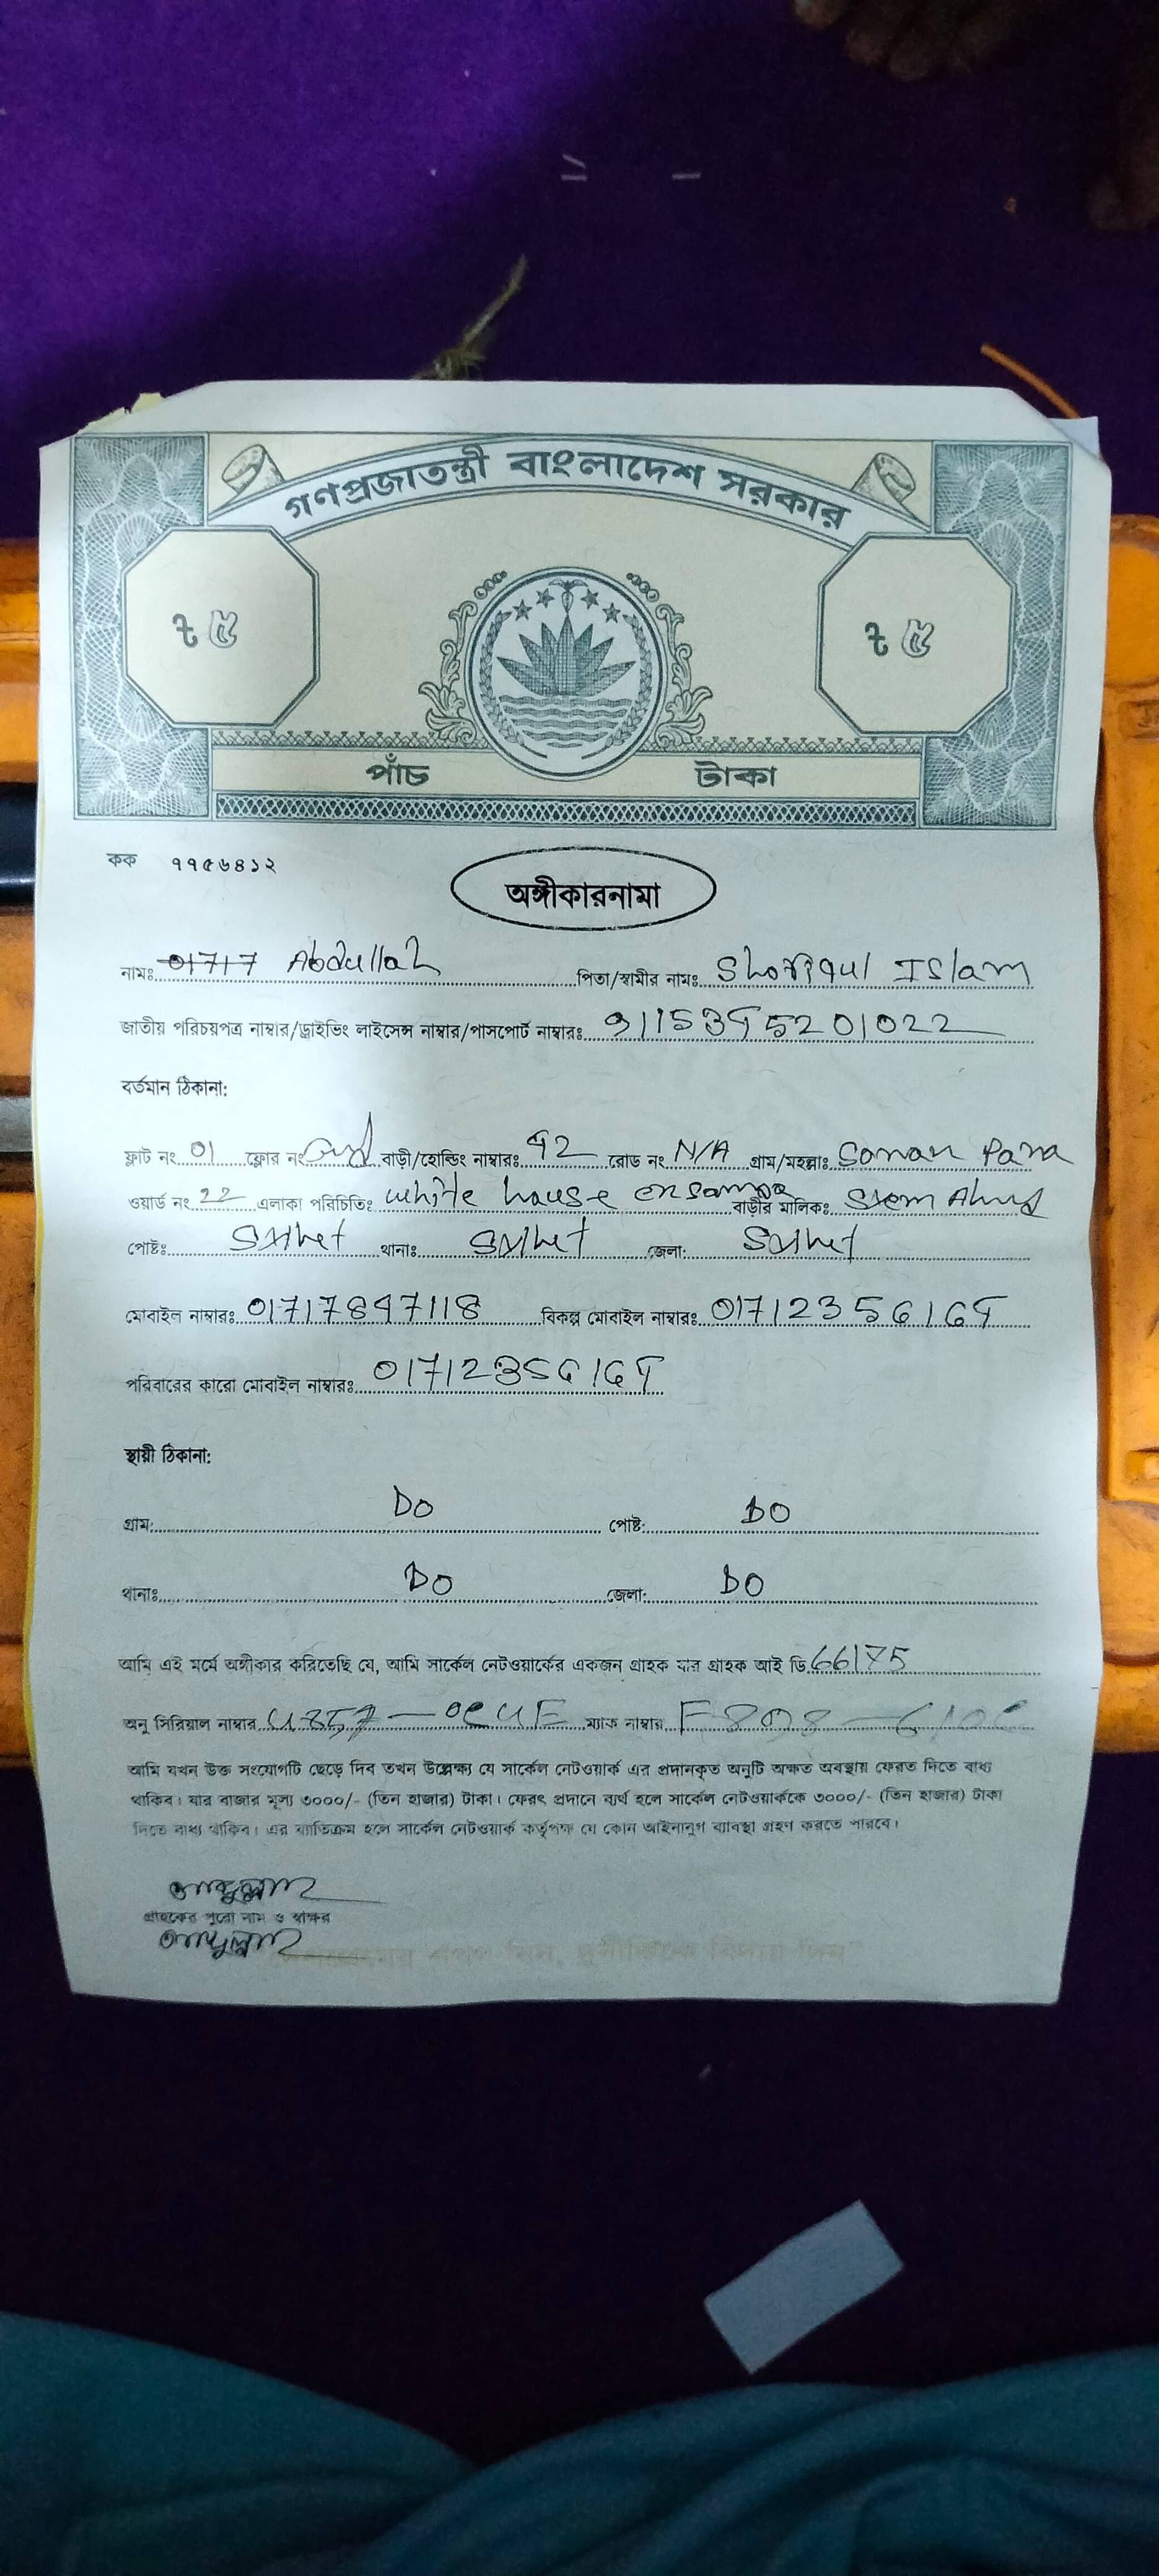 গণপ্রজাতন্ত্রী বাংলাদেশ সরকার
৳ ৫ ৳ ৫
পাঁচ টাকা
কক ৭৭৫৬৪১২
অঙ্গীকারনামা
নামঃ 01717 Abdullah পিতা/স্বামীর নামঃ Shofiqul Islam
জাতীয় পরিচয়পত্র নাম্বার/ড্রাইভিং লাইসেন্স নাম্বার/পাসপোর্ট নাম্বারঃ
বর্তমান ঠিকানা:
ফ্লাট নং 01 ফ্লোর নং বাড়ী/হোল্ডিং নাম্বারঃ রোড নং N/A গ্রাম/মহল্লাঃ Para
ওয়ার্ড নং 22 এলাকা পরিচিতিঃ white house বাড়ীর মালিকঃ
পোষ্টঃ Sylhet থানাঃ Sylhet জেলা: Sylhet
মোবাইল নাম্বারঃ বিকল্প মোবাইল নাম্বারঃ
পরিবারের কারো মোবাইল নাম্বারঃ
স্থায়ী ঠিকানা:
গ্রাম: DO পোষ্ট: DO
থানাঃ DO জেলা: DO
আমি এই মর্মে অঙ্গীকার করিতেছি যে, আমি সার্কেল নেটওয়ার্কের একজন গ্রাহক যার গ্রাহক আই ডি 66175
অনু সিরিয়াল নাম্বার ম্যাক নাম্বার
আমি যখন উক্ত সংযোগটি ছেড়ে দিব তখন উল্লেক্ষ্য যে সার্কেল নেটওয়ার্ক এর প্রদানকৃত অনুটি অক্ষত অবস্থায় ফেরত দিতে বাধ্য
থাকিব। যার বাজার মূল্য ৩০০০/- (তিন হাজার) টাকা। ফেরৎ প্রদানে ব্যর্থ হলে সার্কেল নেটওয়ার্ককে ৩০০০/- (তিন হাজার) টাকা
দিতে বাধ্য থাকিব। এর ব্যতিক্রম হলে সার্কেল নেটওয়ার্ক কর্তৃপক্ষ যে কোন আইনানুগ ব্যাবস্থা গ্রহণ করতে পারবে।
আব্দুল্লাহ
গ্রাহকের পুরো নাম ও স্বাক্ষর
আব্দুল্লাহ